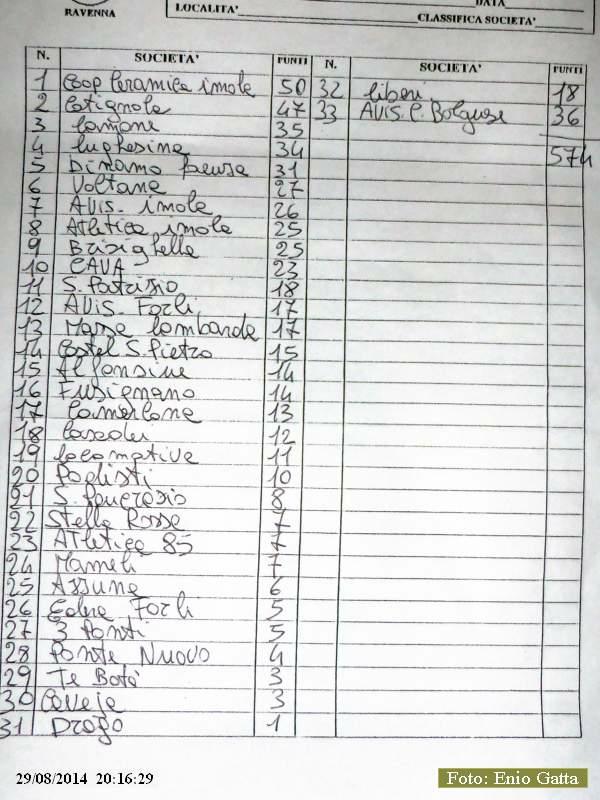 RAVENNA
DATA
LOCALITA'
CLASSIFICA SOCIETA'
N. SOCIETA' PUNTI N. SOCIETA' PUNTI
1 Coop Ceramica imola 50 32 liberi 18
2 Cotignola 47 33 AVIS. C. Bolognese 36
3 Lamone 35
4 lughesina 34 574
5 Dinamo faenza 31
6 Voltana 27
7 AVIS. imola 26
8 Atletica imola 25
9 Brisighella 25
10 CAVA 23
11 S. Patrizio 18
12 AVIS. Forli 17
13 Massa lombarda 17
14 Castel S. Pietro 15
15 Alfonsine 14
16 Fusignano 14
17 Camerlona 13
18 12
19 locomotive 11
20 Podisti 10
21 S. Pancrazio 8
22 Stella Rossa 7
23 ATletica 85 7
24 Mameli 7
25 6
26 Edera Forli 5
27 3 Ponti 5
28 Ponte Nuovo 4
29 Te Botà 3
30 Caveja 3
31 Drago 1
29/08/2014 20:16:29
Foto: Enio Gatta